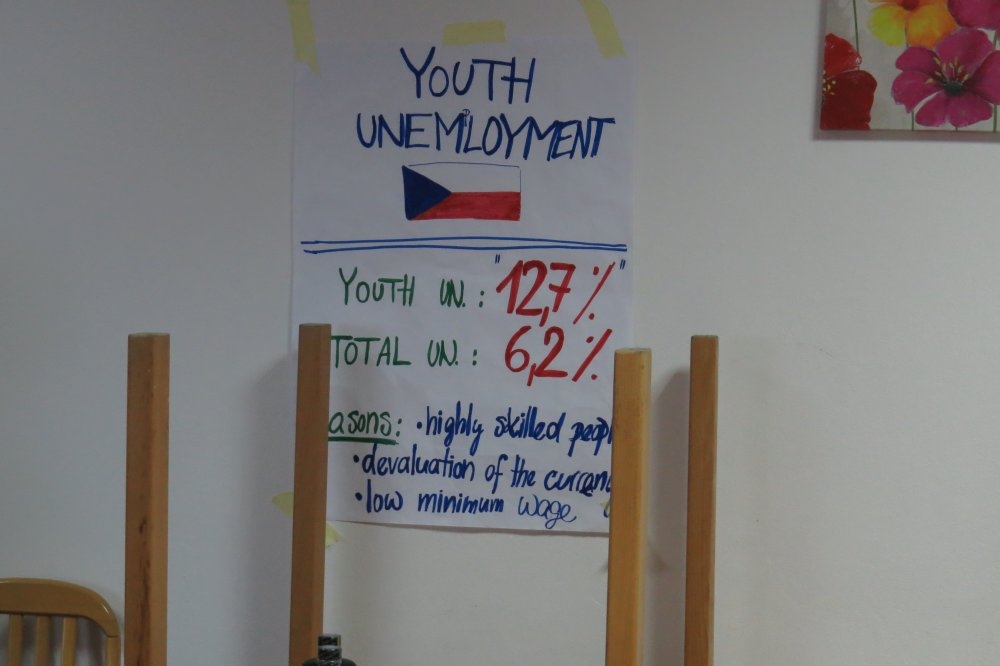 YOUTH
UNEMiLOYMENT
YOUTH UN.: "12,7%"
TOTAL UN.: 6,2%
asons: • highly skilled peop
• devaluation of the curren
• low minimum wage